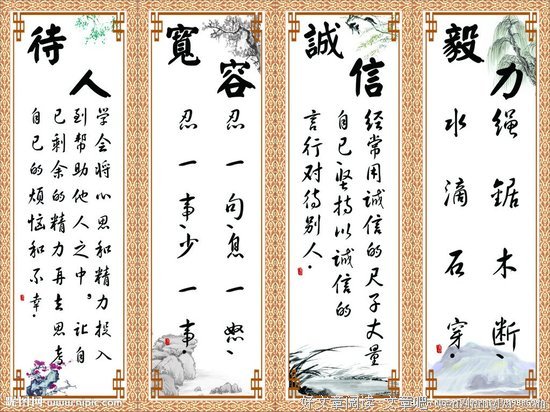 待人
学会将心思和精力投入
到帮助他人之中，让自
己剩余的精力再去思考
自己的烦恼和不幸。
寬容
忍一句、息一怒、
忍一事、少一事。
誠信
经常用诚信的尺子丈量
自己、坚持以诚信的
言行对待别人。
毅力
绳锯木断、
水滴石穿。
昵图网 www.nipic.com
好文章阅读—文章吧